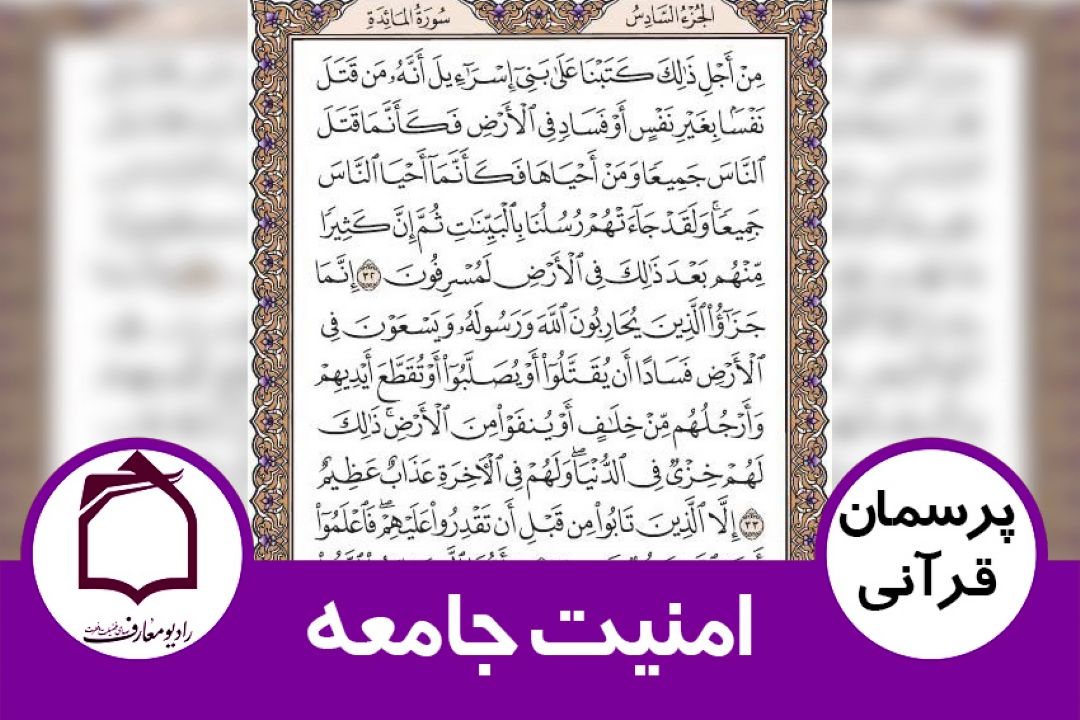 الجُزْءُ السَّادِسُ
سُورَةُ المَائِدَةِ
مِنْ أَجْلِ ذَٰلِكَ كَتَبْنَا عَلَىٰ بَنِىٓ إِسْرَٰٓءِيلَ أَنَّهُۥ مَن قَتَلَ
نَفْسًۢا بِغَيْرِ نَفْسٍ أَوْ فَسَادٍ فِى ٱلْأَرْضِ فَكَأَنَّمَا قَتَلَ
ٱلنَّاسَ جَمِيعًا وَمَنْ أَحْيَاهَا فَكَأَنَّمَآ أَحْيَا ٱلنَّاسَ
جَمِيعًا ۚ وَلَقَدْ جَآءَتْهُمْ رُسُلُنَا بِٱلْبَيِّنَٰتِ ثُمَّ إِنَّ كَثِيرًا
مِّنْهُم بَعْدَ ذَٰلِكَ فِى ٱلْأَرْضِ لَمُسْرِفُونَ ٣٢ إِنَّمَا
جَزَٰٓؤُا۟ ٱلَّذِينَ يُحَارِبُونَ ٱللَّهَ وَرَسُولَهُۥ وَيَسْعَوْنَ فِى
ٱلْأَرْضِ فَسَادًا أَن يُقَتَّلُوٓا۟ أَوْ يُصَلَّبُوٓا۟ أَوْ تُقَطَّعَ أَيْدِيهِمْ
وَأَرْجُلُهُم مِّنْ خِلَٰفٍ أَوْ يُنفَوْا۟ مِنَ ٱلْأَرْضِ ۚ ذَٰلِكَ
لَهُمْ خِزْىٌ فِى ٱلدُّنْيَا ۖ وَلَهُمْ فِى ٱلْءَاخِرَةِ عَذَابٌ عَظِيمٌ
٣٣ إِلَّا ٱلَّذِينَ تَابُوا۟ مِن قَبْلِ أَن تَقْدِرُوا۟ عَلَيْهِمْ ۖ فَٱعْلَمُوٓا۟
پرسمان
قرآنی
رادیو معارف
امنیت جامعه